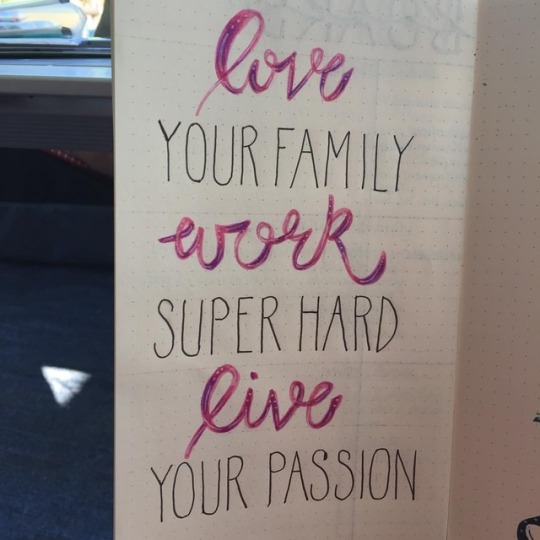 love
YOUR FAMILY
work
SUPER HARD
live
YOUR PASSION